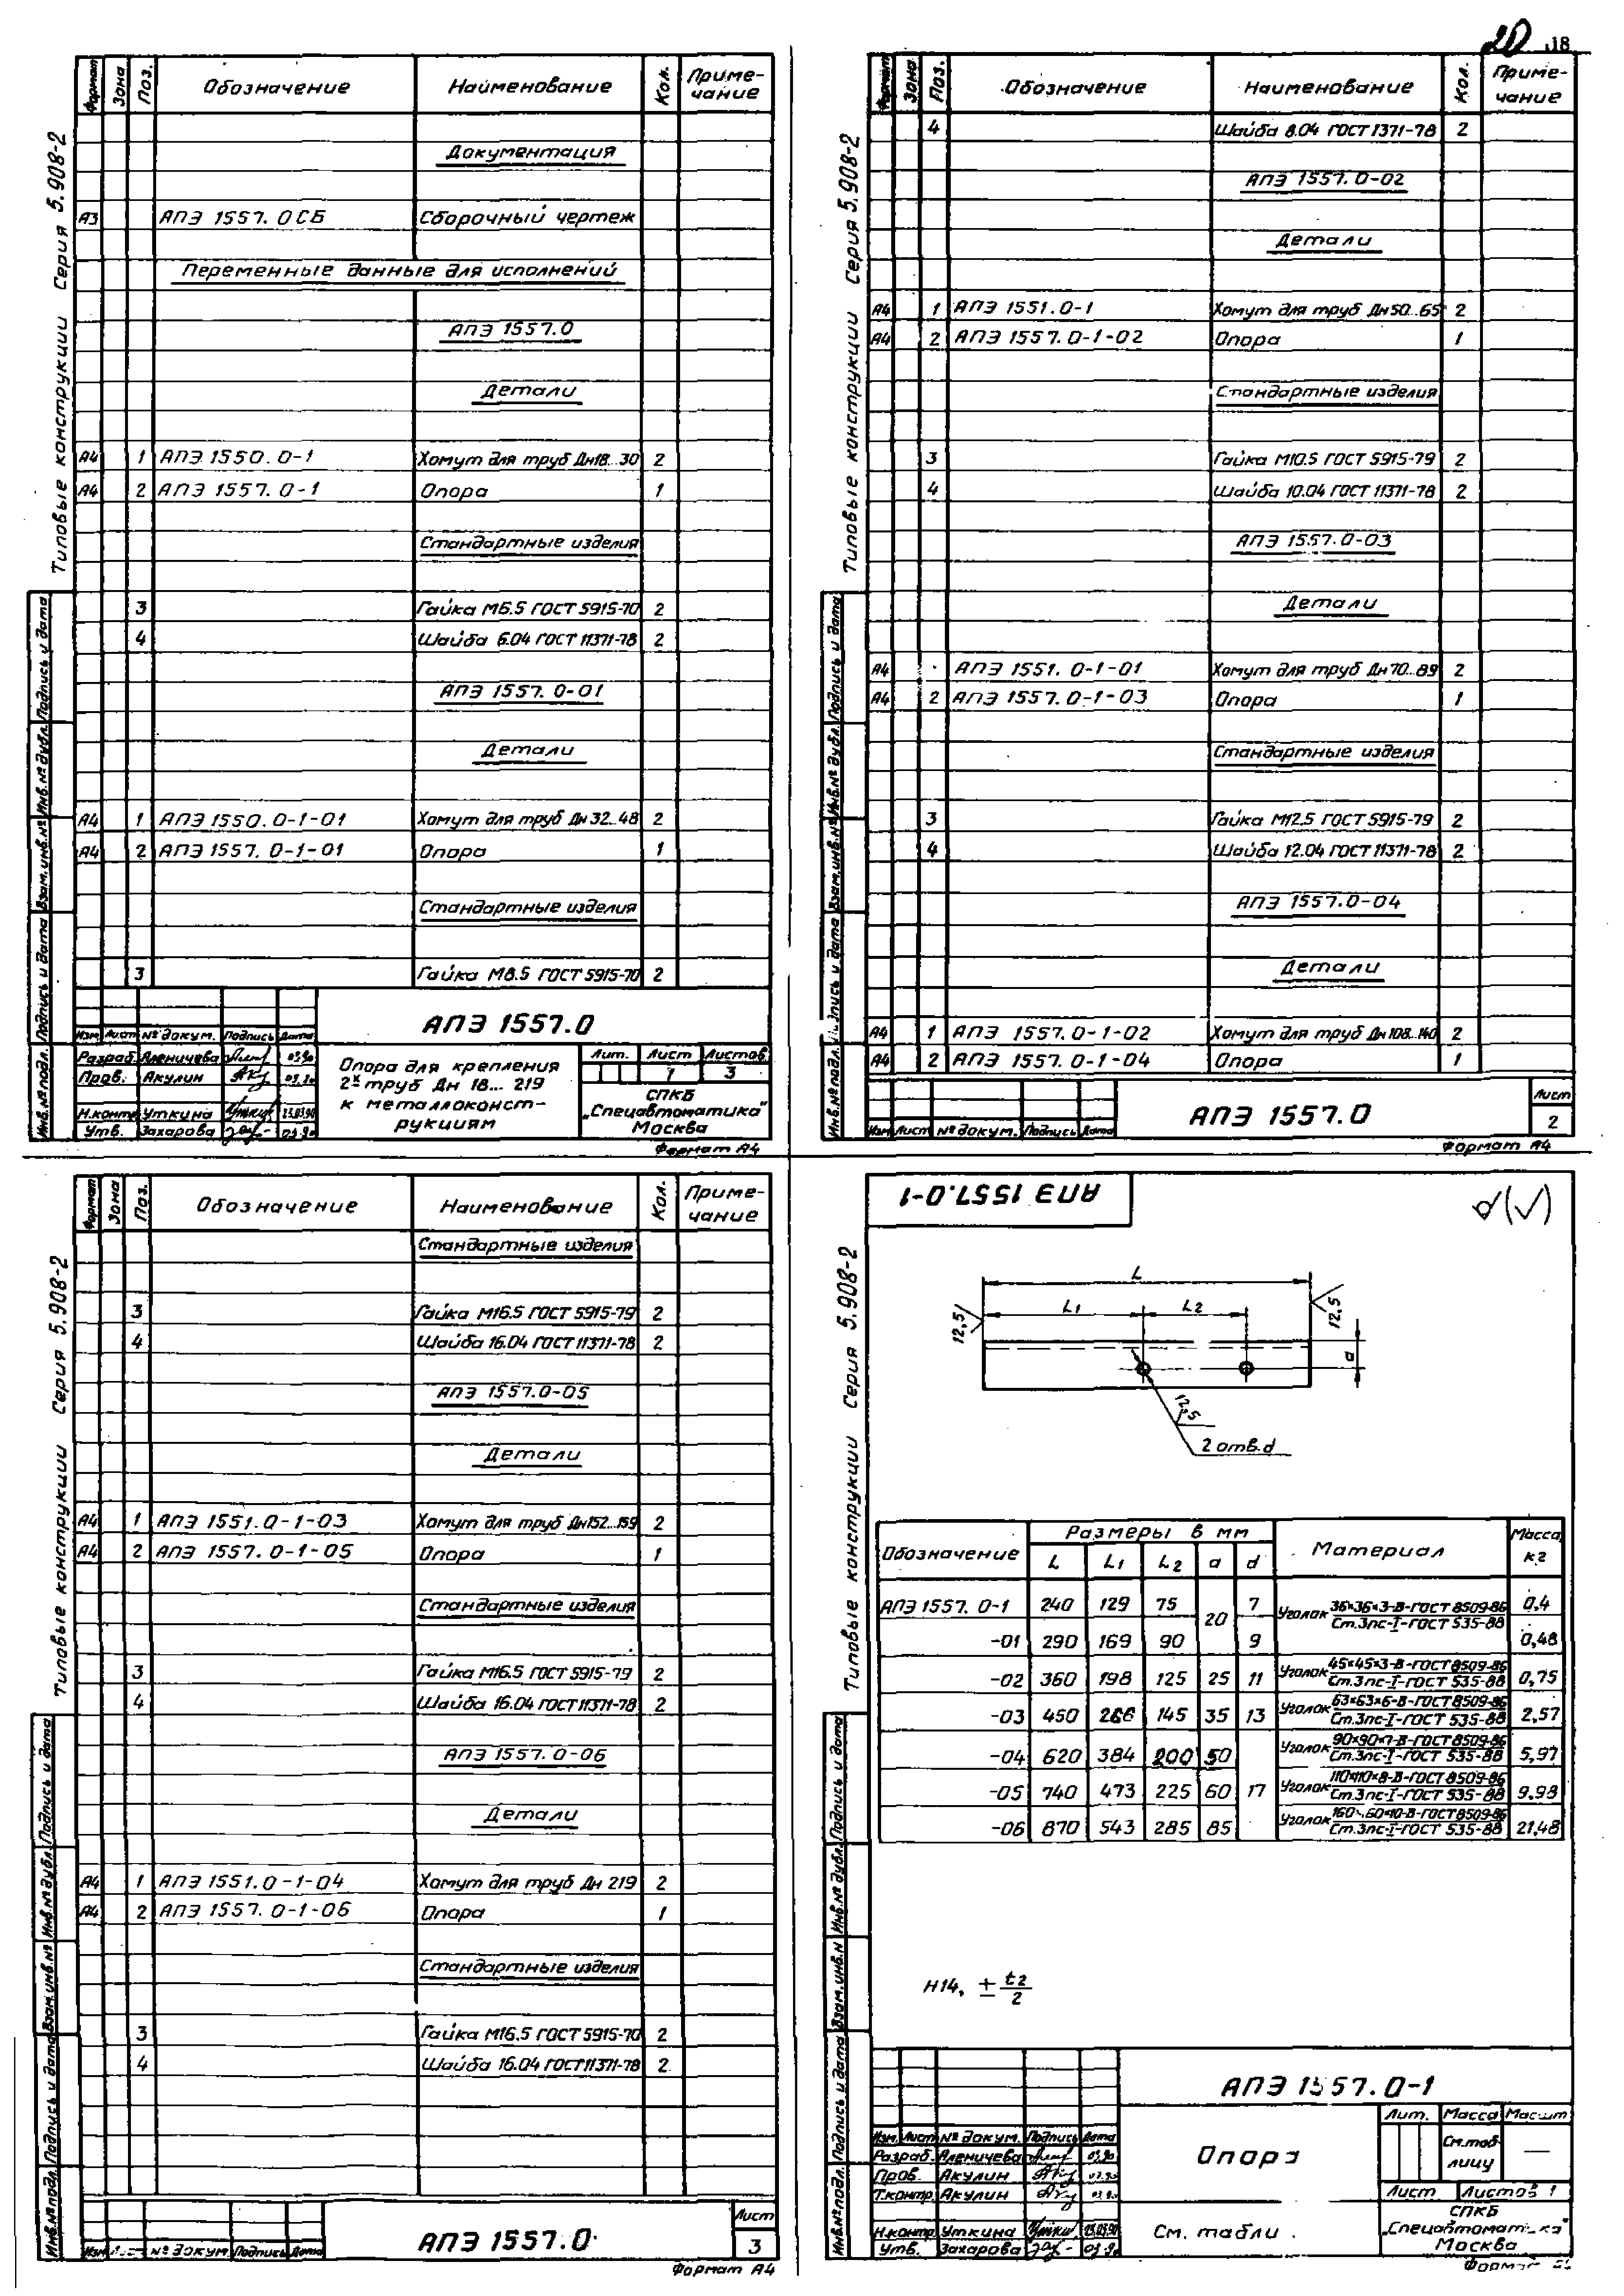 20 18
Типовые конструкции Серия 5.908-2
Формат Зона Поз. Обозначение Наименование Кол. Приме-
чание
Документация
А3 АПЭ 1557. 0СБ Сборочный чертеж
Переменные данные для исполнений
АПЭ 1557.0
Детали
А4 1 АПЭ 1550.0-1 Хомут для труб Дн18...30 2
А4 2 АПЭ 1557. 0-1 Опора 1
Стандартные изделия
3 Гайка М6.5 ГОСТ 5915-70 2
4 Шайба 6.04 ГОСТ 11371-78 2
АПЭ 1557. 0-01
Детали
А4 1 АПЭ 1550. 0-1-01 Хомут для труб Дн 32...48 2
А4 2 АПЭ 1557. 0-1-01 Опора 1
Стандартные изделия
3 Гайка М8.5 ГОСТ 5915-70 2
АПЭ 1557.0
Изм. Лист № докум. Подпись Дата
Разраб. Аленичева 03.90
Пров. Акулин 03.90
Н.контр. Уткина 23.03.90
Утв. Захарова 03.90
Опора для крепления
2х труб Дн 18... 219
к металлоконст-
рукциям
Лит. Лист Листов
1 3
СПКБ
„Спецавтоматика"
Москва
Формат А4
Инв.№ подл. Подпись и дата Взам.инв.№ Инв.№ дубл. Подпись и дата
Типовые конструкции Серия 5.908-2
Формат Зона Поз. Обозначение Наименование Кол. Приме-
чание
4 Шайба 8.04 ГОСТ 1371-78 2
АПЭ 1557. 0-02
Детали
А4 1 АПЭ 1551. 0-1 Хомут для труб Дн50...65 2
А4 2 АПЭ 1557. 0-1-02 Опора 1
Стандартные изделия
3 Гайка М10.5 ГОСТ 5915-79 2
4 Шайба 10.04 ГОСТ 11371-78 2
АПЭ 1557.0-03
Детали
А4 АПЭ 1551. 0-1-01 Хомут для труб Дн70...89 2
А4 2 АПЭ 1557. 0-1-03 Опора 1
Стандартные изделия
3 Гайка М12.5 ГОСТ 5915-79 2
4 Шайба 12.04 ГОСТ 11371-78 2
АПЭ 1557.0-04
Детали
А4 1 АПЭ 1557. 0-1-02 Хомут для труб Дн108...140 2
А4 2 АПЭ 1557. 0-1-04 Опора 1
Изм Лист № докум. Подпись Дата
АПЭ 1557.0
Лист
2
Формат А4
Инв.№ подл. Подпись и дата Взам.инв.№ Инв.№ дубл. Подпись и дата
Типовые конструкции Серия 5.908-2
Формат Зона Поз. Обозначение Наименование Кол. Приме-
чание
Стандартные изделия
3 Гайка М16.5 ГОСТ 5915-79 2
4 Шайба 16.04 ГОСТ 11371-78 2
АПЭ 1557.0-05
Детали
А4 1 АПЭ 1551.0-1-03 Хомут для труб Дн152...159 2
А4 2 АПЭ 1557. 0-1-05 Опора 1
Стандартные изделия
3 Гайка М16.5 ГОСТ 5915-79 2
4 Шайба 16.04 ГОСТ 11371-78 2
АПЭ 1557. 0-06
Детали
А4 1 АПЭ 1551.0-1-04 Хомут для труб Дн 219 2
А4 2 АПЭ 1557. 0-1-06 Опора 1
Стандартные изделия
3 Гайка М16.5 ГОСТ 5915-70 2
4 Шайба 16.04 ГОСТ 11371-78 2
Изм № докум. Подпись Дата
АПЭ 1557.0
Лист
3
Формат А4
Инв.№ подл. Подпись и дата Взам.инв.№ Инв.№ дубл. Подпись и дата
Типовые конструкции Серия 5.908-2
АПЭ 1557.0-1
(√)
L
L1 L2
12,5 12,5
a
12,5
2 отв. d
Обозначение Размеры в мм Материал Масса,
кг
L L1 L2 a d
АПЭ 1557. 0-1 240 129 75 20 7 Уголок 36×36×3-В-ГОСТ 8509-86 0,4
Ст.3пс-I-ГОСТ 535-88
-01 290 169 90 9 0,48
-02 360 198 125 25 11 Уголок 45×45×3-В-ГОСТ 8509-86 0,75
Ст.3пс-I-ГОСТ 535-88
-03 450 266 145 35 13 Уголок 63×63×6-В-ГОСТ 8509-86 2,57
Ст.3пс-I-ГОСТ 535-88
-04 620 384 200 50 Уголок 90×90×7-В-ГОСТ 8509-86 5,97
Ст.3пс-I-ГОСТ 535-88
-05 740 473 225 60 17 Уголок 110×110×8-В-ГОСТ 8509-86 9,98
Ст.3пс-I-ГОСТ 535-88
-06 870 543 285 85 Уголок 160×160×10-В-ГОСТ 8509-86 21,48
Ст.3пс-I-ГОСТ 535-88
Н14, ± t2/2
АПЭ 1557.0-1
Изм. Лист № докум. Подпись Дата
Разраб. Аленичева 03.90
Пров. Акулин 03.90
Т.контр. Акулин 03.90
Н.контр. Уткина 23.03.90
Утв. Захарова 03.90
Опора
См. табли
Лит. Масса Масшт
См.таб-
лицу —
Лист Листов 1
СПКБ
„Спецавтоматика"
Москва
Формат
Инв.№ подл. Подпись и дата Взам.инв.№ Инв.№ дубл. Подпись и дата